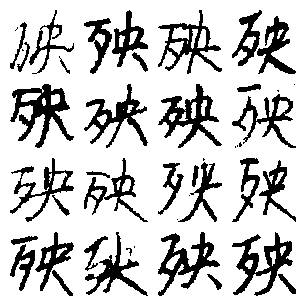 殃殃殃殃
殃殃殃殃
殃殃殃殃
殃殃殃殃